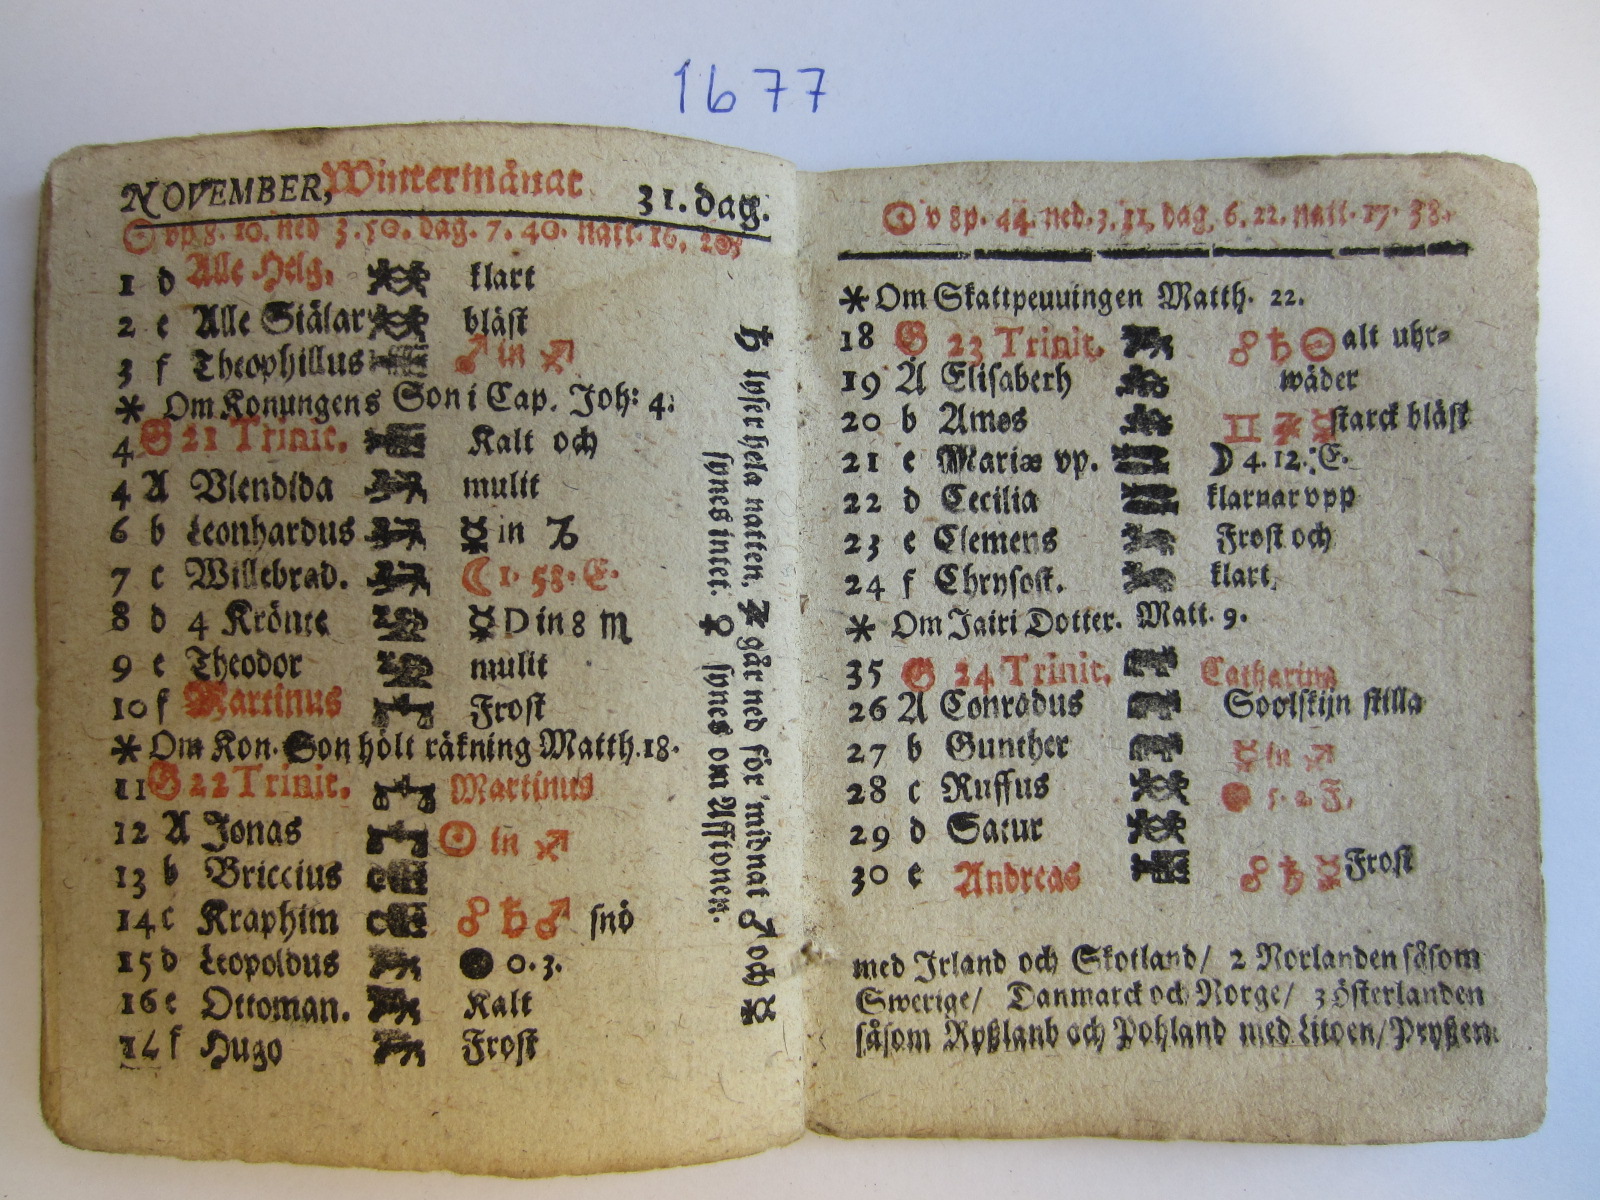 1677
NOVEMBER, Wintermånat 31. dag.
☉ vp 8. 10. ned 3. 50. dag. 7. 40. natt. 16. 20
1 d Alle Helg. klart
2 e Alle Siälar bläst
3 f Theophillus ♂ in ♐
* Om Konungens Son i Cap. Joh: 4.
4 G 21 Trinit. Kalt och
4 A Vlendlda mulit
6 b Leonhardus ☿ in ♑
7 c Willebrad. ☾ 1. 58. E.
8 d 4 Krönte ☿ D in 8 ♏
9 e Theodor mulit
10 f Martinus Frost
* Om Kon. Son hölt räkning Matth. 18.
11 G 22 Trinit. Martinus
12 A Jonas ☉ in ♐
13 b Briccius
14 c Kraphim ☍ ♄ ♂ snö
15 d Leopoldus ● 0. 3.
16 e Ottoman. Kalt
14 f Hugo Frost
♄ lyser hela natten. ♃ går ned för midnat ♂ och ☿
synes intet. ♀ synes om Afftonen.
☉ v 8p. 44. ned. 3. 11, dag. 6. 22. natt. 17. 38.
* Om Skattpeuuingen Matth. 22.
18 G 23 Trinit. ☍ ♄ ☉ alt uhr=
19 A Elisabeth wäder
20 b Amos ♊ ♃ ☿ starck bläst
21 c Mariæ vp. ☽ 4. 12. E.
22 d Cecilia klarnar vpp
23 e Clemens Frost och
24 f Chrysost. klart,
* Om Jairi Dotter. Matt. 9.
35 G 24 Trinit. Catharina
26 A Conradus Soolskijn stilla
27 b Gunther ☿ in ♐
28 c Ruffus ● 5. 2 F.
29 d Satur
30 e Andreas ☍ ♄ ☿ Frost
med Irland och Skotland/ 2 Norlanden såsom
Swerige/ Danmarck och Norge/ 3 Österlanden
såsom Ryßland och Pohland med Litoen/ Pryßen